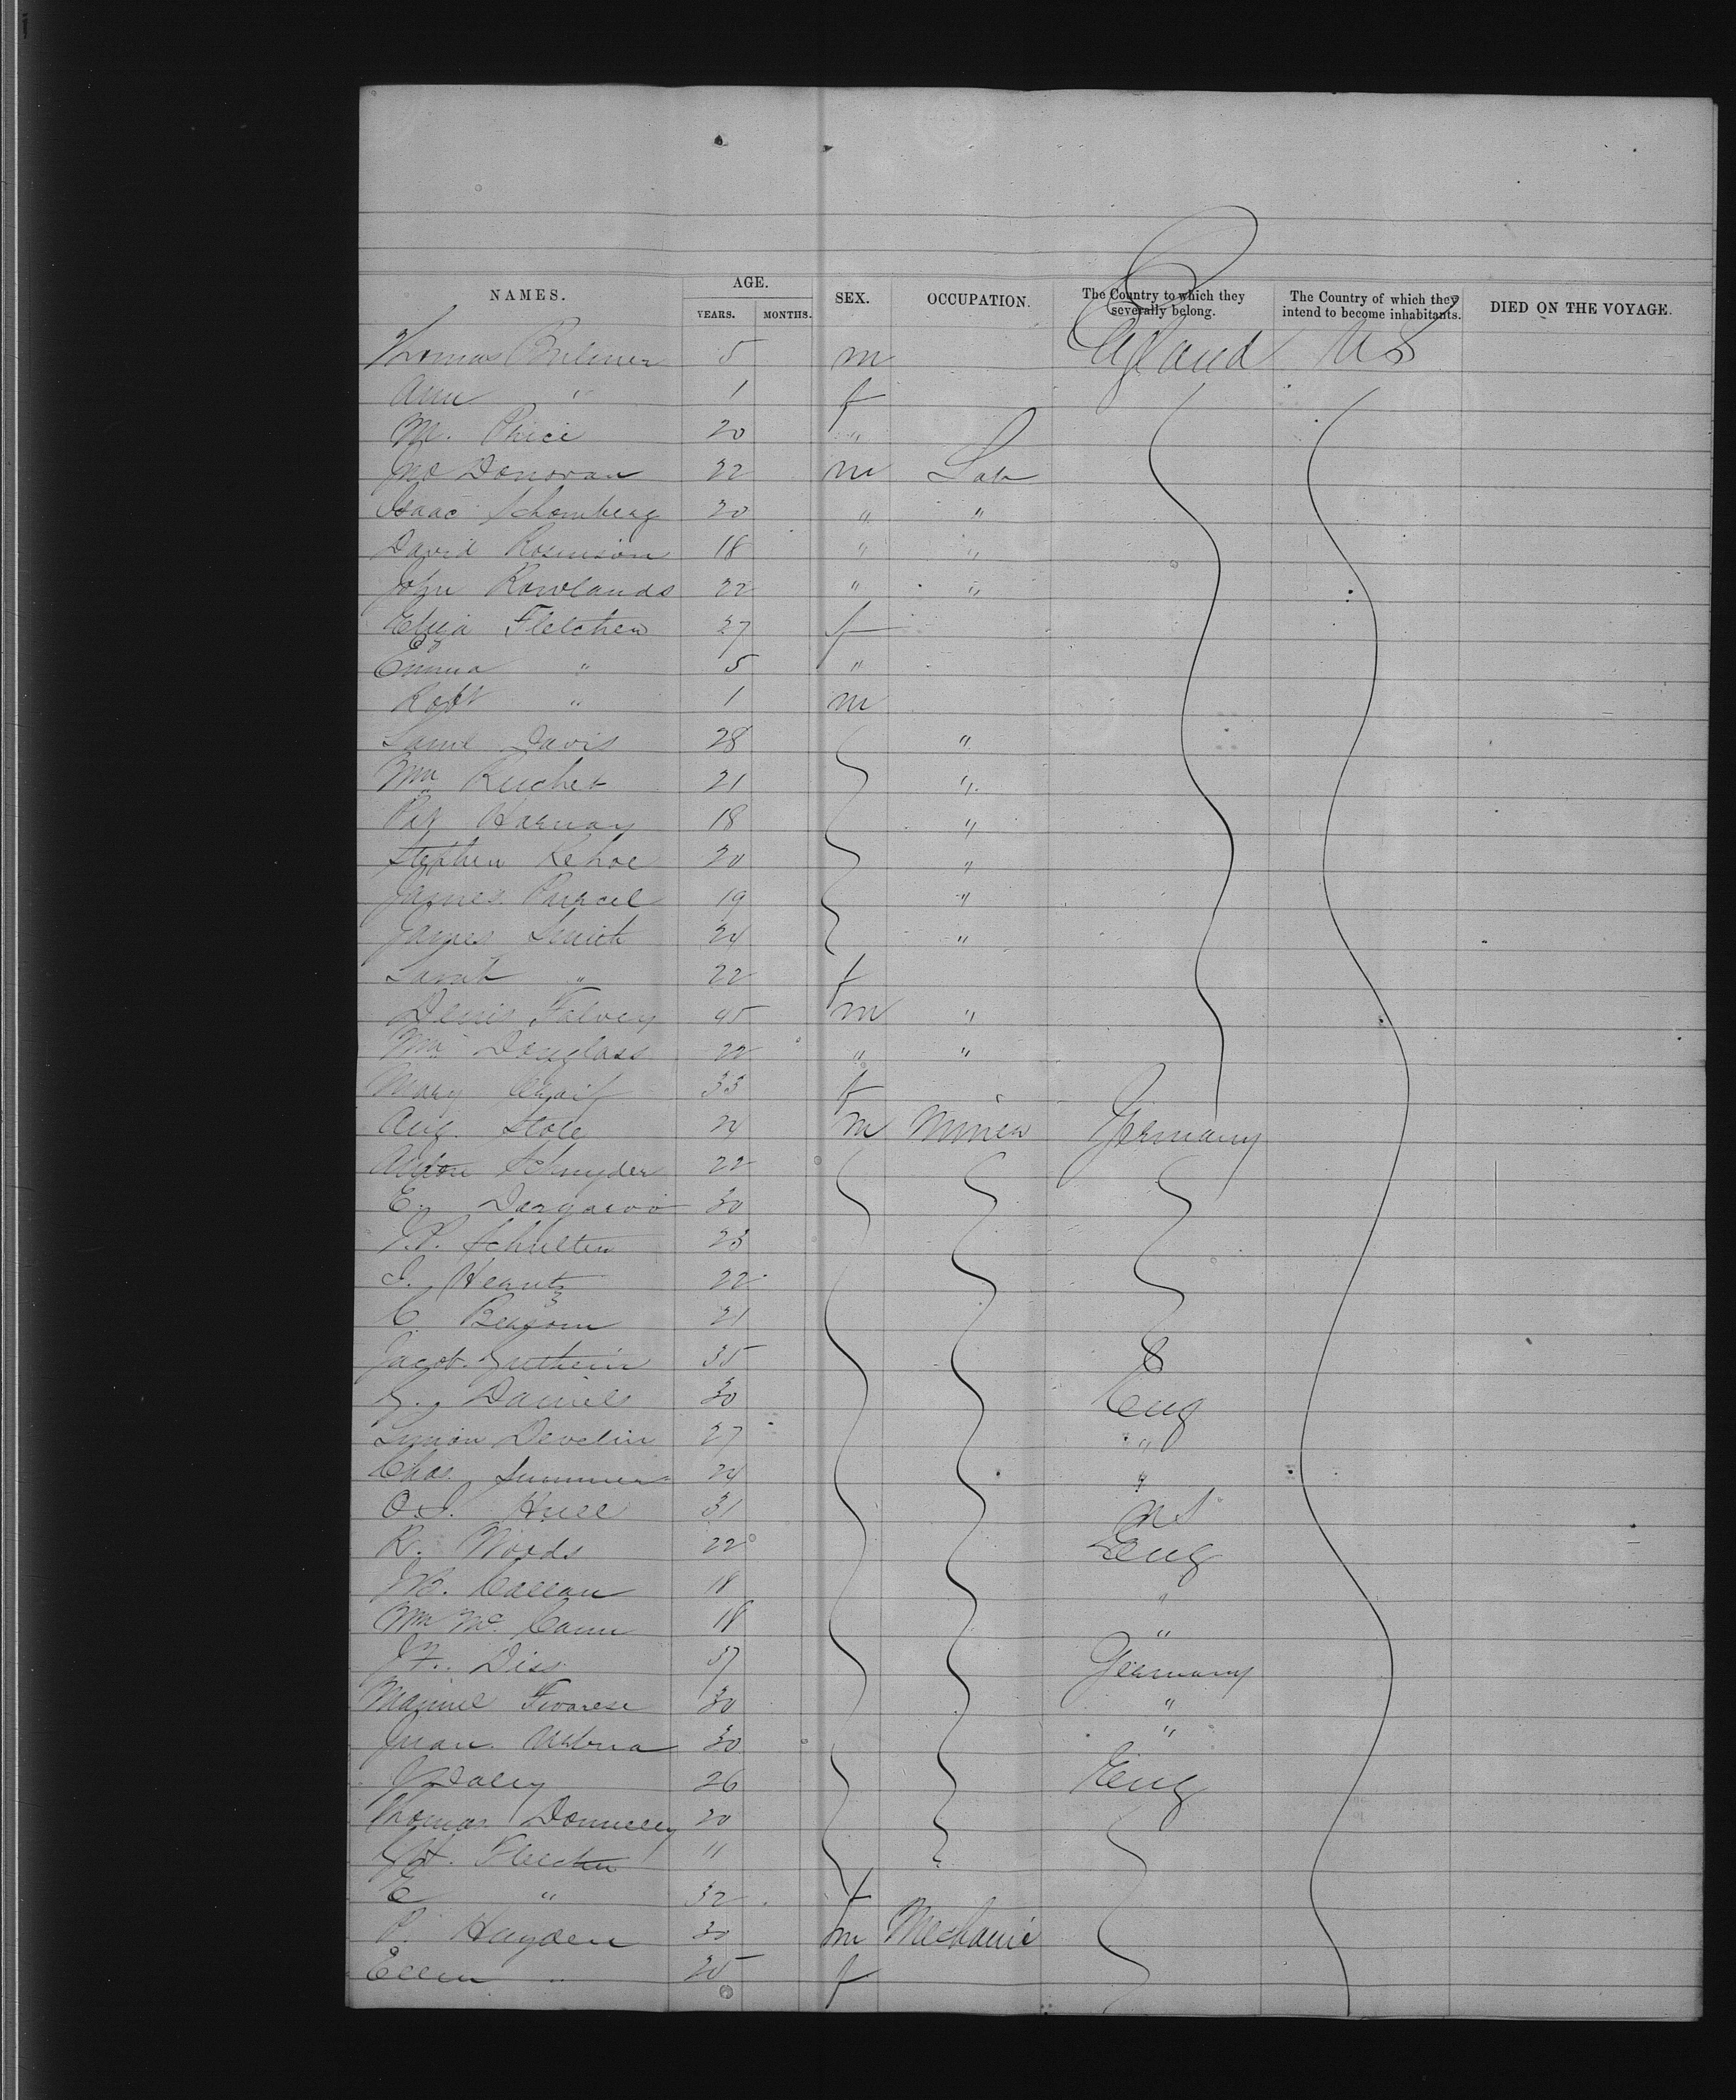 NAMES. AGE. SEX. OCCUPATION. The Country to which they severally belong. The Country of which they intend to become inhabitants. DIED ON THE VOYAGE.
YEARS. MONTHS.
Thomas Bulmer 5 m England U S
Ann " 1 f
M. Price 20 "
Jno Donovan 22 m Lab
Isaac Schomberg 20 " "
David Rosinson 18 " "
John Rowlands 22 " "
Eliza Fletcher 27 f
Emma " 5 "
Robt " 1 m
Saml Davis 28 "
Wm 21 "
Pat Harnay 18 "
Stephen Kehoe 20 "
James Purcel 19 "
James Smith 24 "
Sarah " 22 f
Denis Falvey 45 m "
Wm Douglass 22 " "
Mary 33 f
Aug. Stole 24 m Miner Germany
Anton Schnyder 22
E. 30
J.P. Schulten 23
J. Heantz 22
C. 21
Jacob 35
G. Daniels 30 Eng
Simon Develin 27 "
Chas. Summer 24 "
O.S. Hull 31 U S
R. Woods 22 Eng
J.B. Callan 18 "
Wm Mc Cann 18 "
J.F. Diss 37 Germany
Manuel 30 "
Juan Urbina 30 "
J Daley 26 Eng
Thomas Donnelly 20
J.H. Fletcher 11
E " 32 f
P. Hayden 30 m Mechanic
Ellen " 25 f